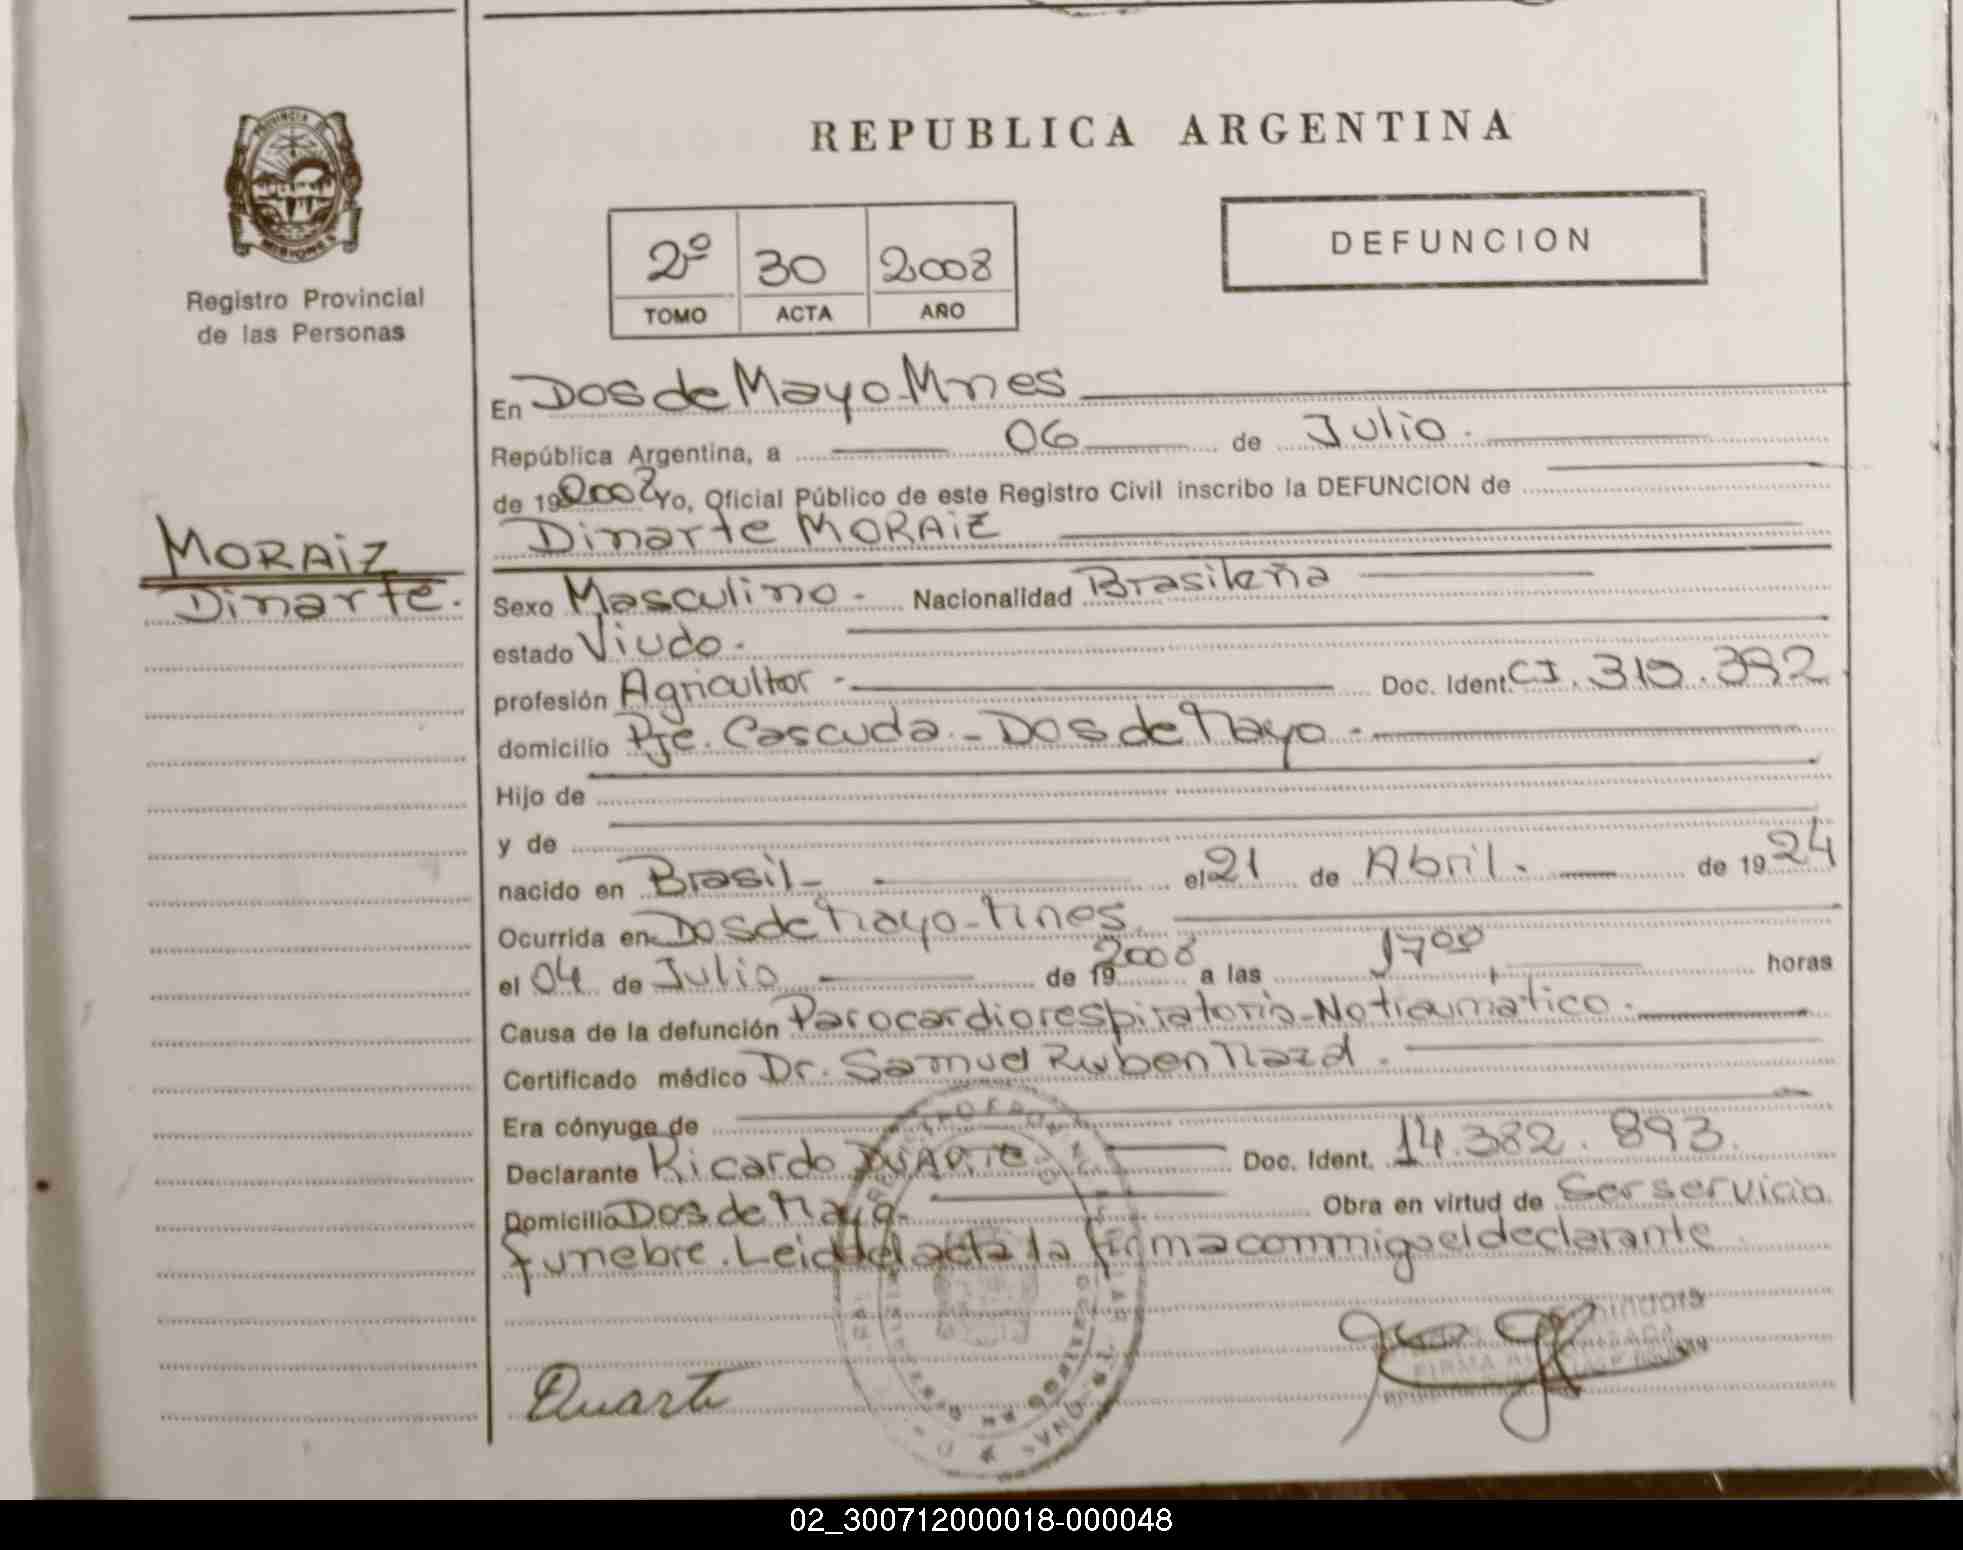 PROVINCIA DE
MISIONES
Registro Provincial
de las Personas
REPUBLICA ARGENTINA
2º 30 2008
TOMO ACTA AÑO
DEFUNCION
En Dos de Mayo-Mnes
República Argentina, a 06 de Julio.
de 19 2008 Yo, Oficial Público de este Registro Civil inscribo la DEFUNCION de
Dinarte MORAIZ
MORAIZ
Dinarte.
Sexo Masculino - Nacionalidad Brasileña
estado Viudo.
profesión Agricultor - Doc. Ident. CI. 319.392
domicilio Pje. Cascuda - Dos de Mayo -
Hijo de
y de
nacido en Brasil - el 21 de Abril. de 19 24
Ocurrida en Dos de Mayo - Mnes
el 04 de Julio de 19 2008 a las 17 00 horas
Causa de la defunción Parocardiorespiratorio-No traumático.
Certificado médico Dr. Samuel Ruben
Era cónyuge de
Declarante Ricardo DUARTE Doc. Ident. 14.382.893.
Domicilio Dos de Mayo- Obra en virtud de Ser servicio
funebre. Leida el acta la firma conmigo el declarante
Duarte
FIRMA
02_300712000018-000048